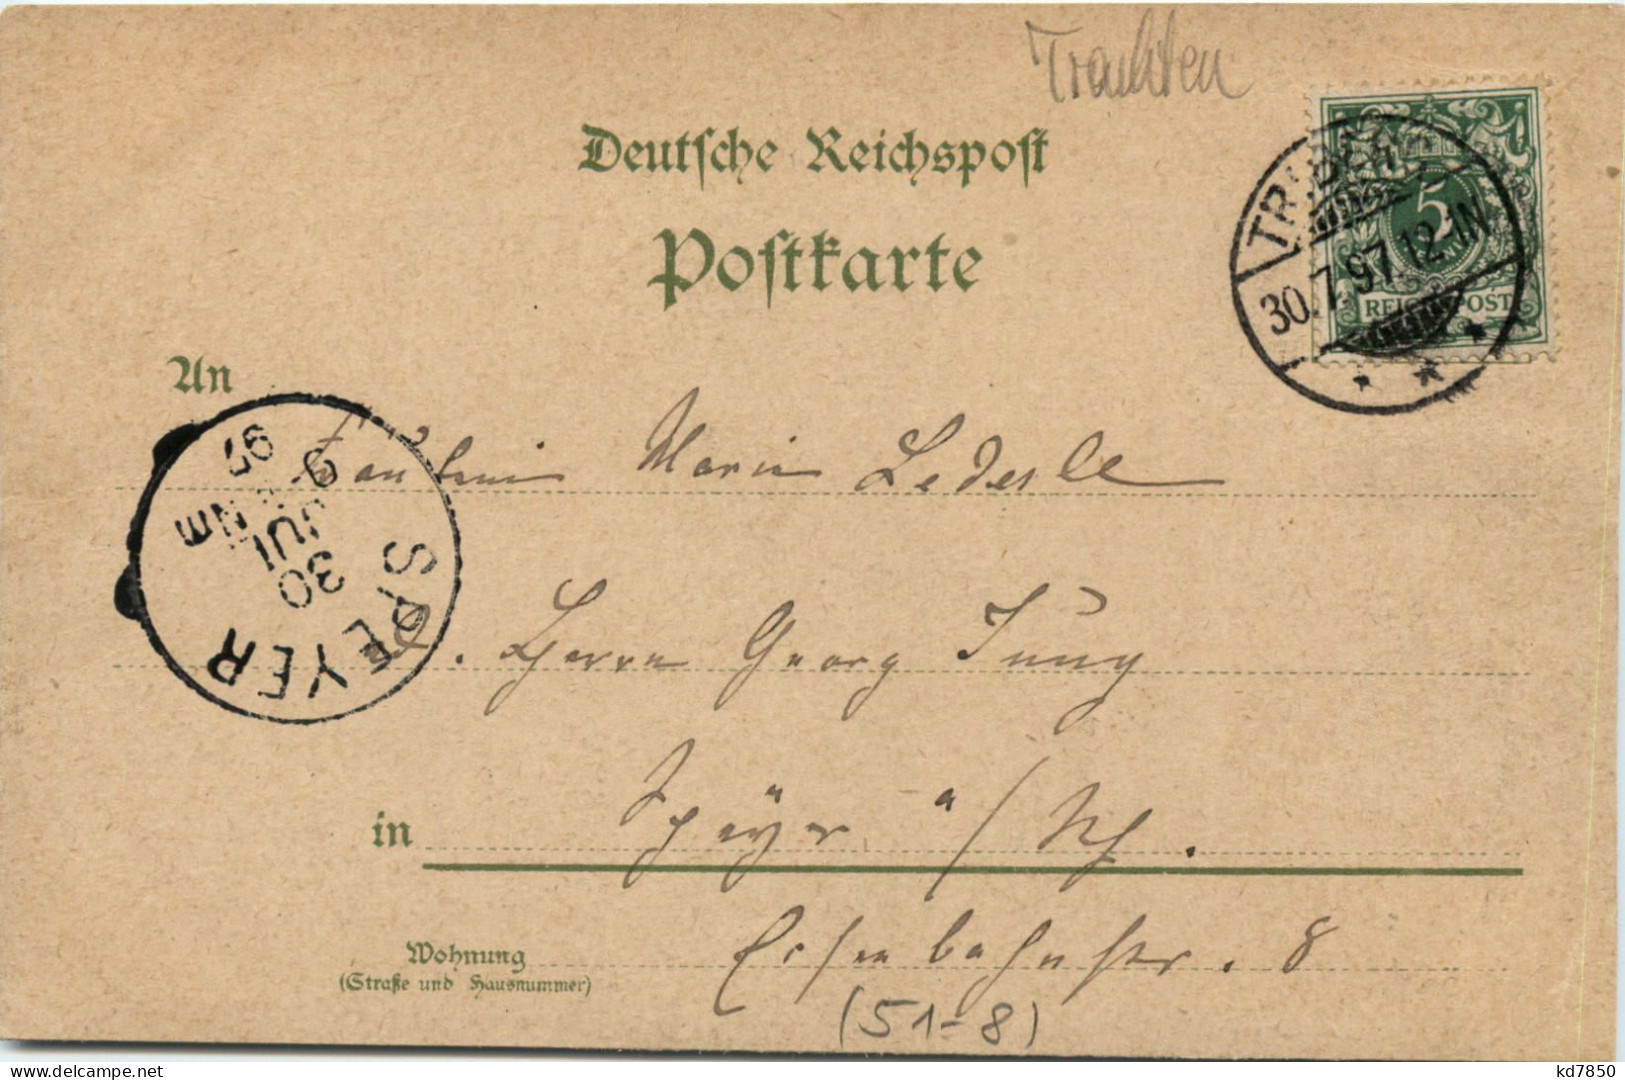 Trachten
Deutsche Reichspost
Postkarte
TRIBERG
30.7.97.12-1N.
5
REICHSPOST
An
Fräulein Marie Lederle
SPEYER
30
JUL
9 NM
97
d. Herrn Georg Jung
in Speyer a/Rh.
Wohnung
(Straße und Hausnummer)
Eisenbahnstr. 8
(51-8)
kd7850